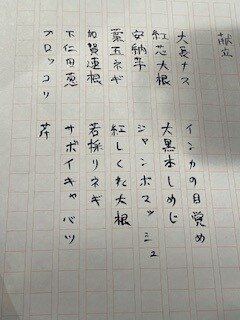 献立
大長ナス　インカの目覚め
紅芯大根　大黒本しめじ
安納芋　ジャンボマッシュ
葉玉ネギ　紅しぐれ大根
加賀蓮根　若採りネギ
下仁田葱　サボイキャベツ
ブロッコリ　芹